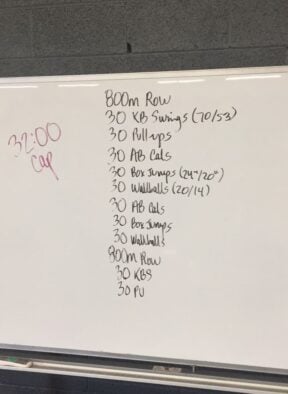 32:00
cap
800m Row
30 KB Swings (70/53)
30 Pull-ups
30 AB Cals
30 Box Jumps (24"/20")
30 Wallballs (20/14)
30 AB Cals
30 Box Jumps
30 Wallballs
800m Row
30 KBS
30 PU